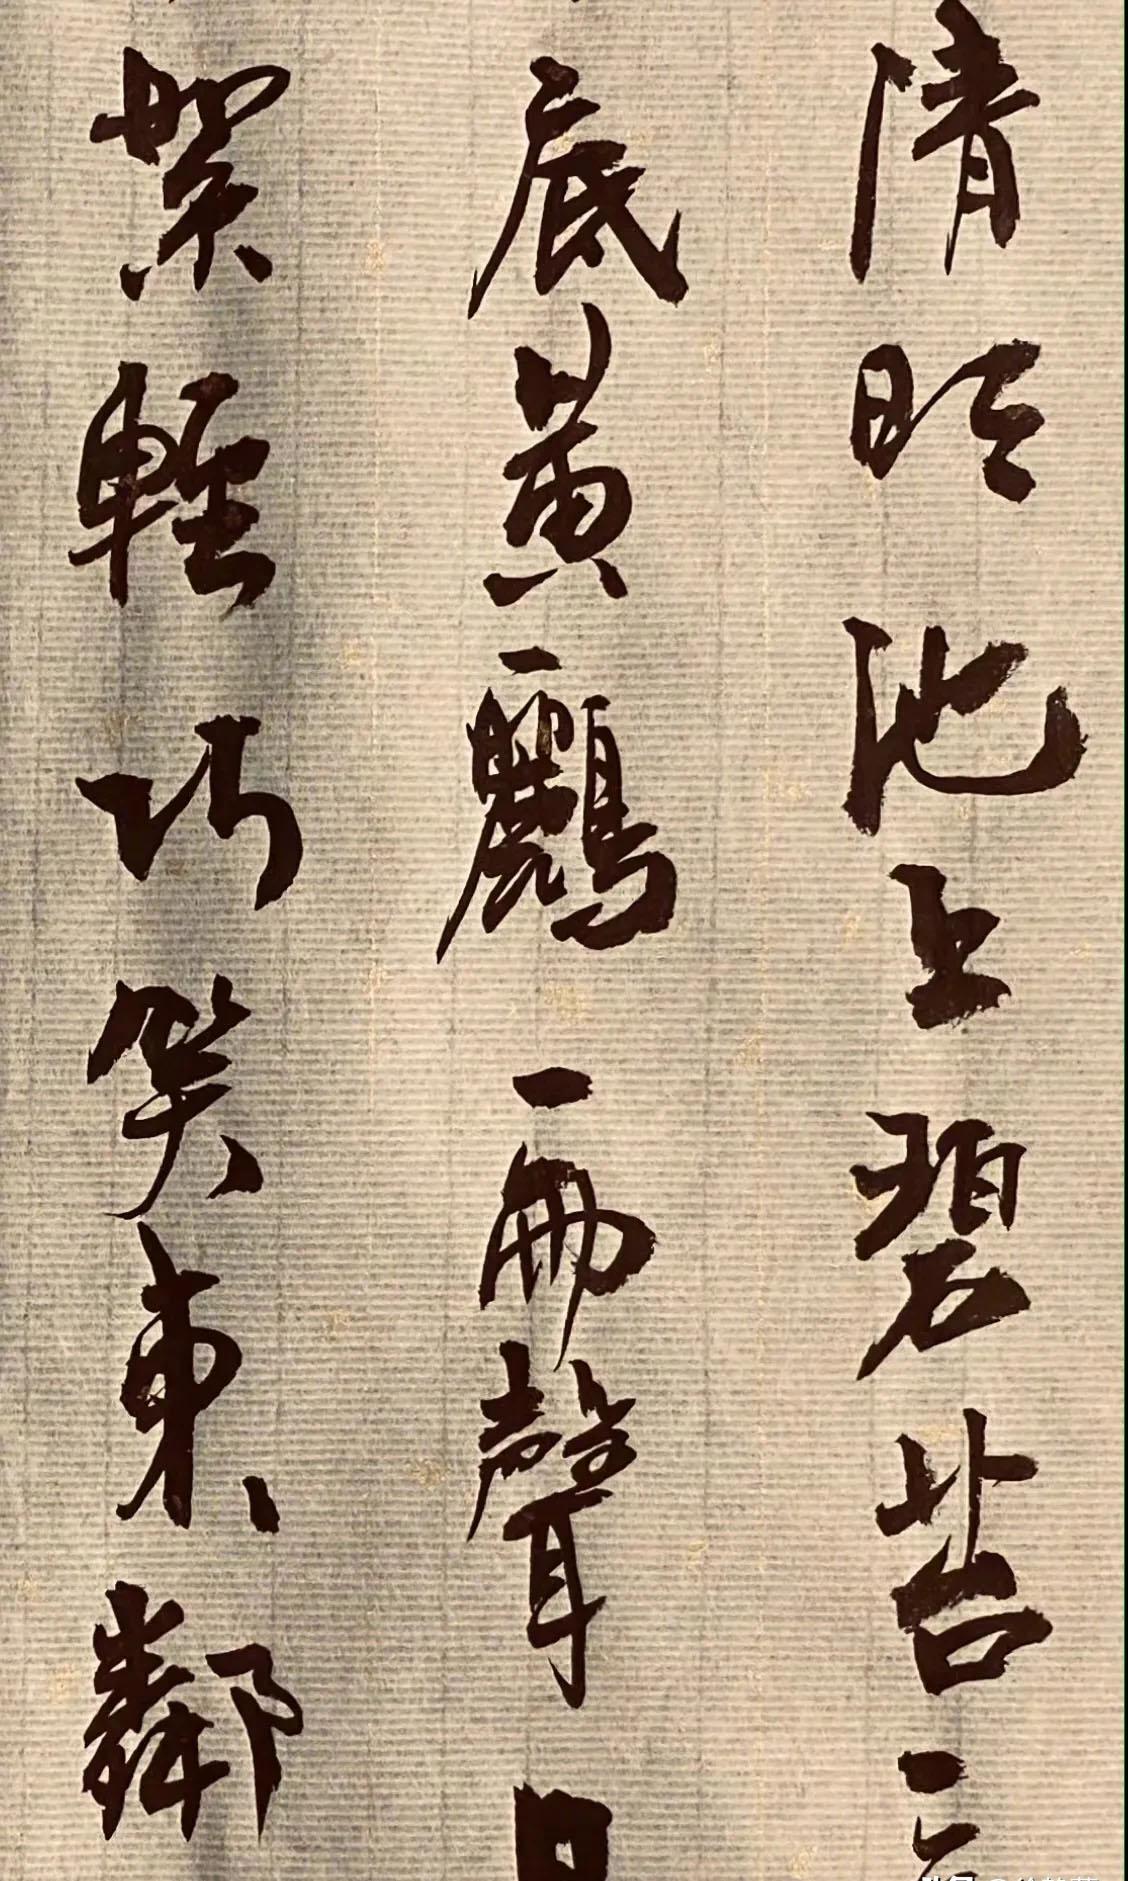 清明池上碧苔三
底黃鸝一兩聲日
絮輕巧笑東鄰